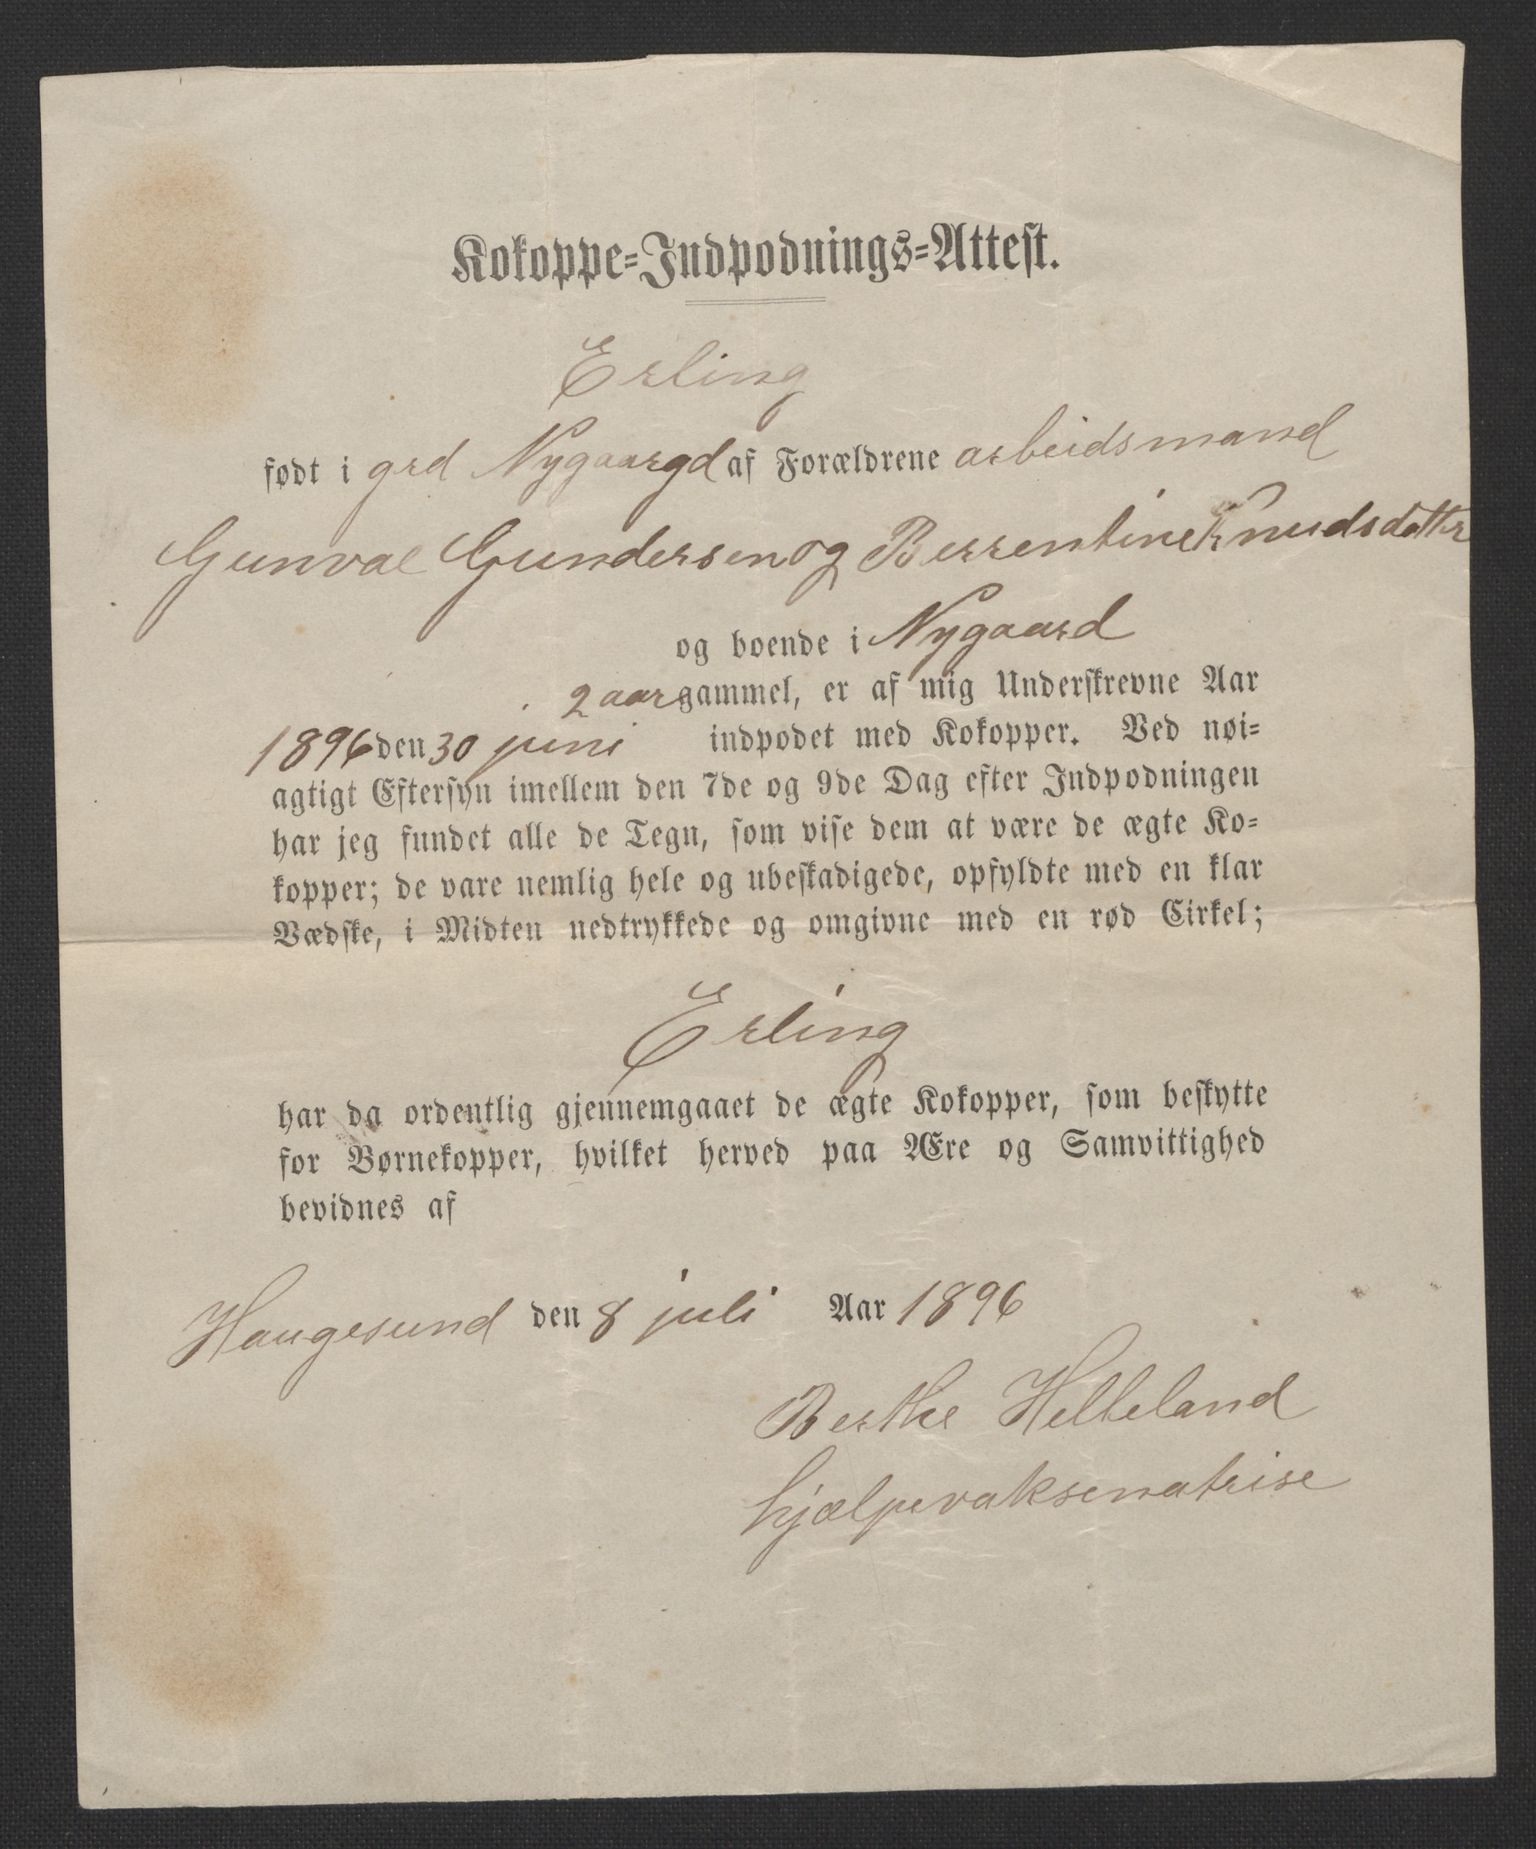 Kokoppe-Indpodnings-Attest.
Erling
født i grd Nygaargd af Forældrene arbeidsmand
Gunval Gundersen og Berrentine Knudsdatter
og boende i Nygaard
2 aar gammel, er af mig Underskrevne Aar
1896 den 30 juni indpodet med Kokopper. Ved nøi-
agtigt Eftersyn imellem den 7de og 9de Dag efter Indpodningen
har jeg fundet alle de Tegn, som vise dem at være de ægte Ko-
kopper; de vare nemlig hele og ubeskadigede, opfyldte med en klar
Vædske, i Midten nedtrykkede og omgivne med en rød Cirkel;
Erling
har da ordentlig gjennemgaaet de ægte Kokopper, som beskytte
for Børnekopper, hvilket herved paa Ære og Samvittighed
bevidnes af
Haugesund den 8 juli Aar 1896
Berthe Helleland
hjælpevaksenatrise